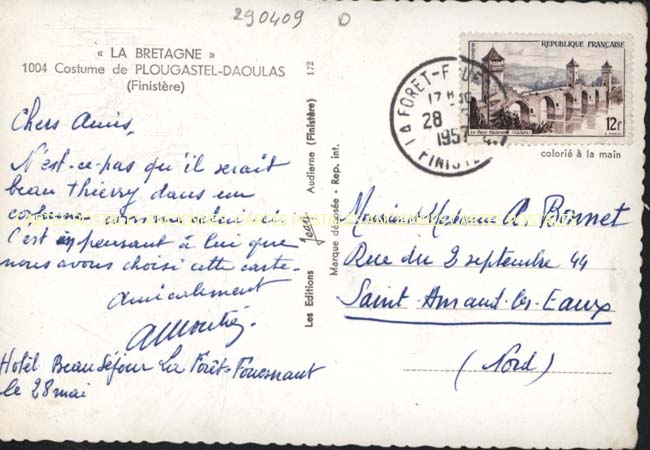 290409 D
« LA BRETAGNE »
1004 Costume de PLOUGASTEL-DAOULAS
(Finistère)
Chers Amis,
N'est-ce-pas qu'il serait
beau Thierry dans un
costume
C'est en pensant à lui que
nous avons choisi cette carte.
Amicalement
Hôtel Beau Séjour La Forêt-Fouesnant
le 28 mai
Les Editions Jean Audierne (Finistère) 172
Marque déposée - Rep. int.
LA FORET-F
17 H 30
28
1957
FINIST
POSTES
REPUBLIQUE FRANÇAISE
Le Pont Valentré (Cahors)
12f
colorié à la main
Monsieur Madame A Bonnet
Rue du 2 septembre 44
Saint-Amand-les-Eaux
(Nord)